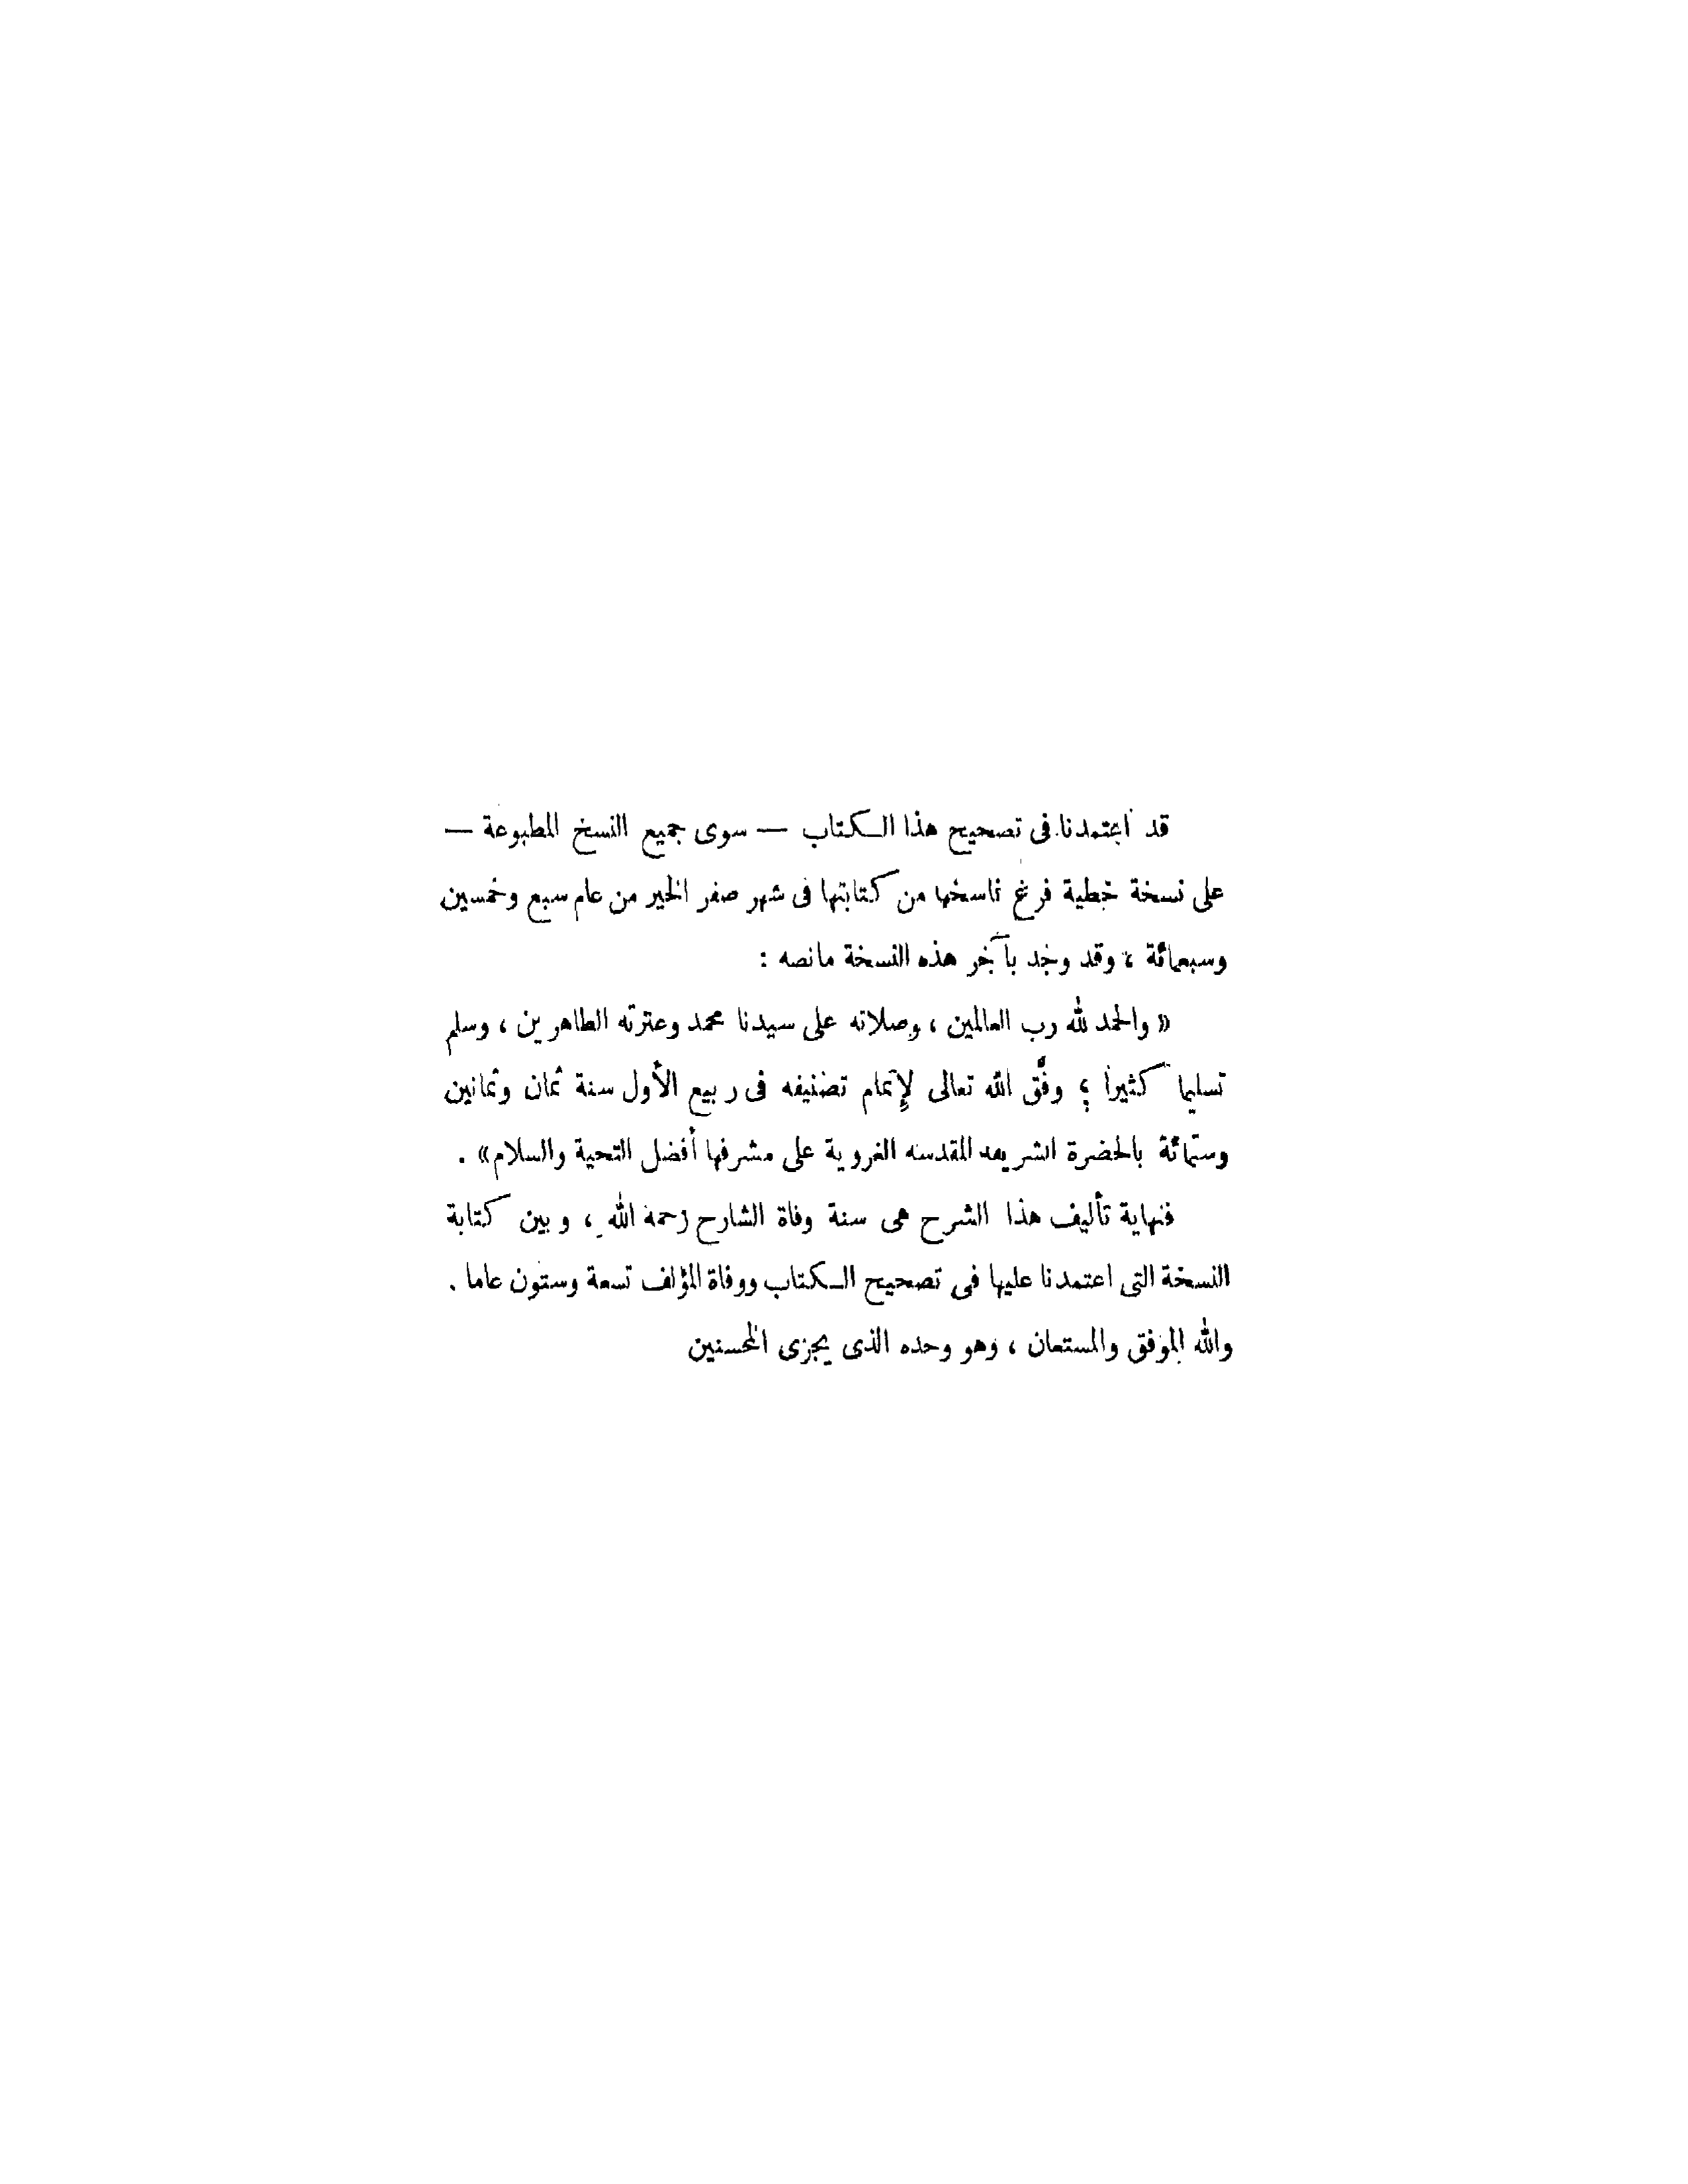 قد اعتمدنا فى تصحيح هذا الكتاب — سوى جميع النسخ المطبوعة —
على نسخة خطية فرغ ناسخها من كتابتها فى شهر صفر الخير من عام سبع وخمسين
وسبعمائة ، وقد وجد بآخر هذه النسخة مانصه :
« والحمد لله رب العالمين ، وصلاته على سيدنا محمد وعترته الطاهرين ، وسلم
تسليما كثيرا ؛ وفَّق الله تعالى لإتمام تصنيفه فى ربيع الأول سنة ثمان وثمانين
وستمائة بالحضرة الشريفة المقدسة الغروية على مشرفها أفضل التحية والسلام» .
فنهاية تأليف هذا الشرح هى سنة وفاة الشارح رحمه الله ، وبين كتابة
النسخة التى اعتمدنا عليها فى تصحيح الكتاب ووفاة المؤلف تسعة وستون عاما .
والله الموفق والمستعان ، وهو وحده الذى يجزى المحسنين